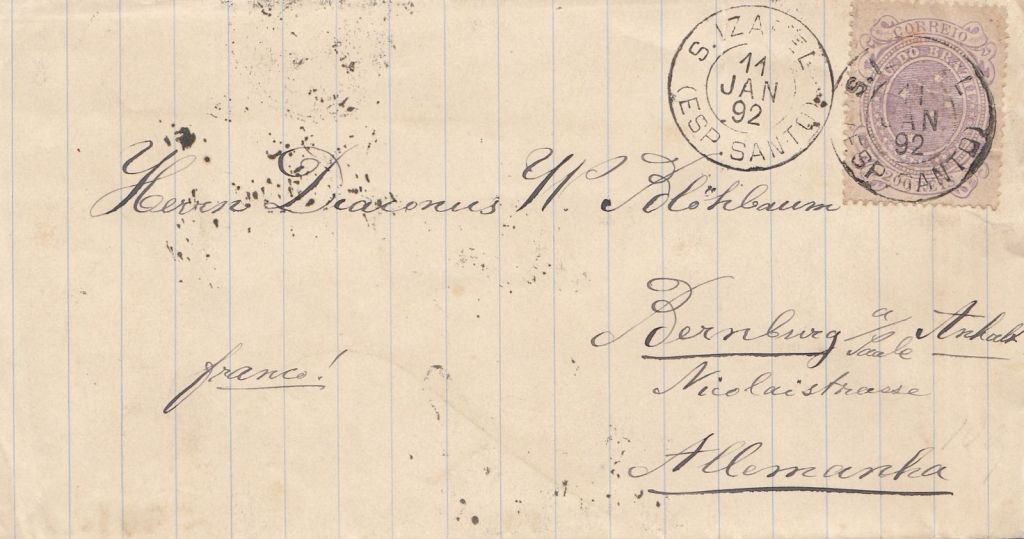 S. IZABEL
11
JAN
92
(ESP. SANTO)
CORREIO
S. L
11
JAN
92
(ESP. SANTO)
200
Herrn Diaconus W. Blöhbaum
Bernburg a/Saale Anhalt
franco!
Nicolaistrasse
Allemanha